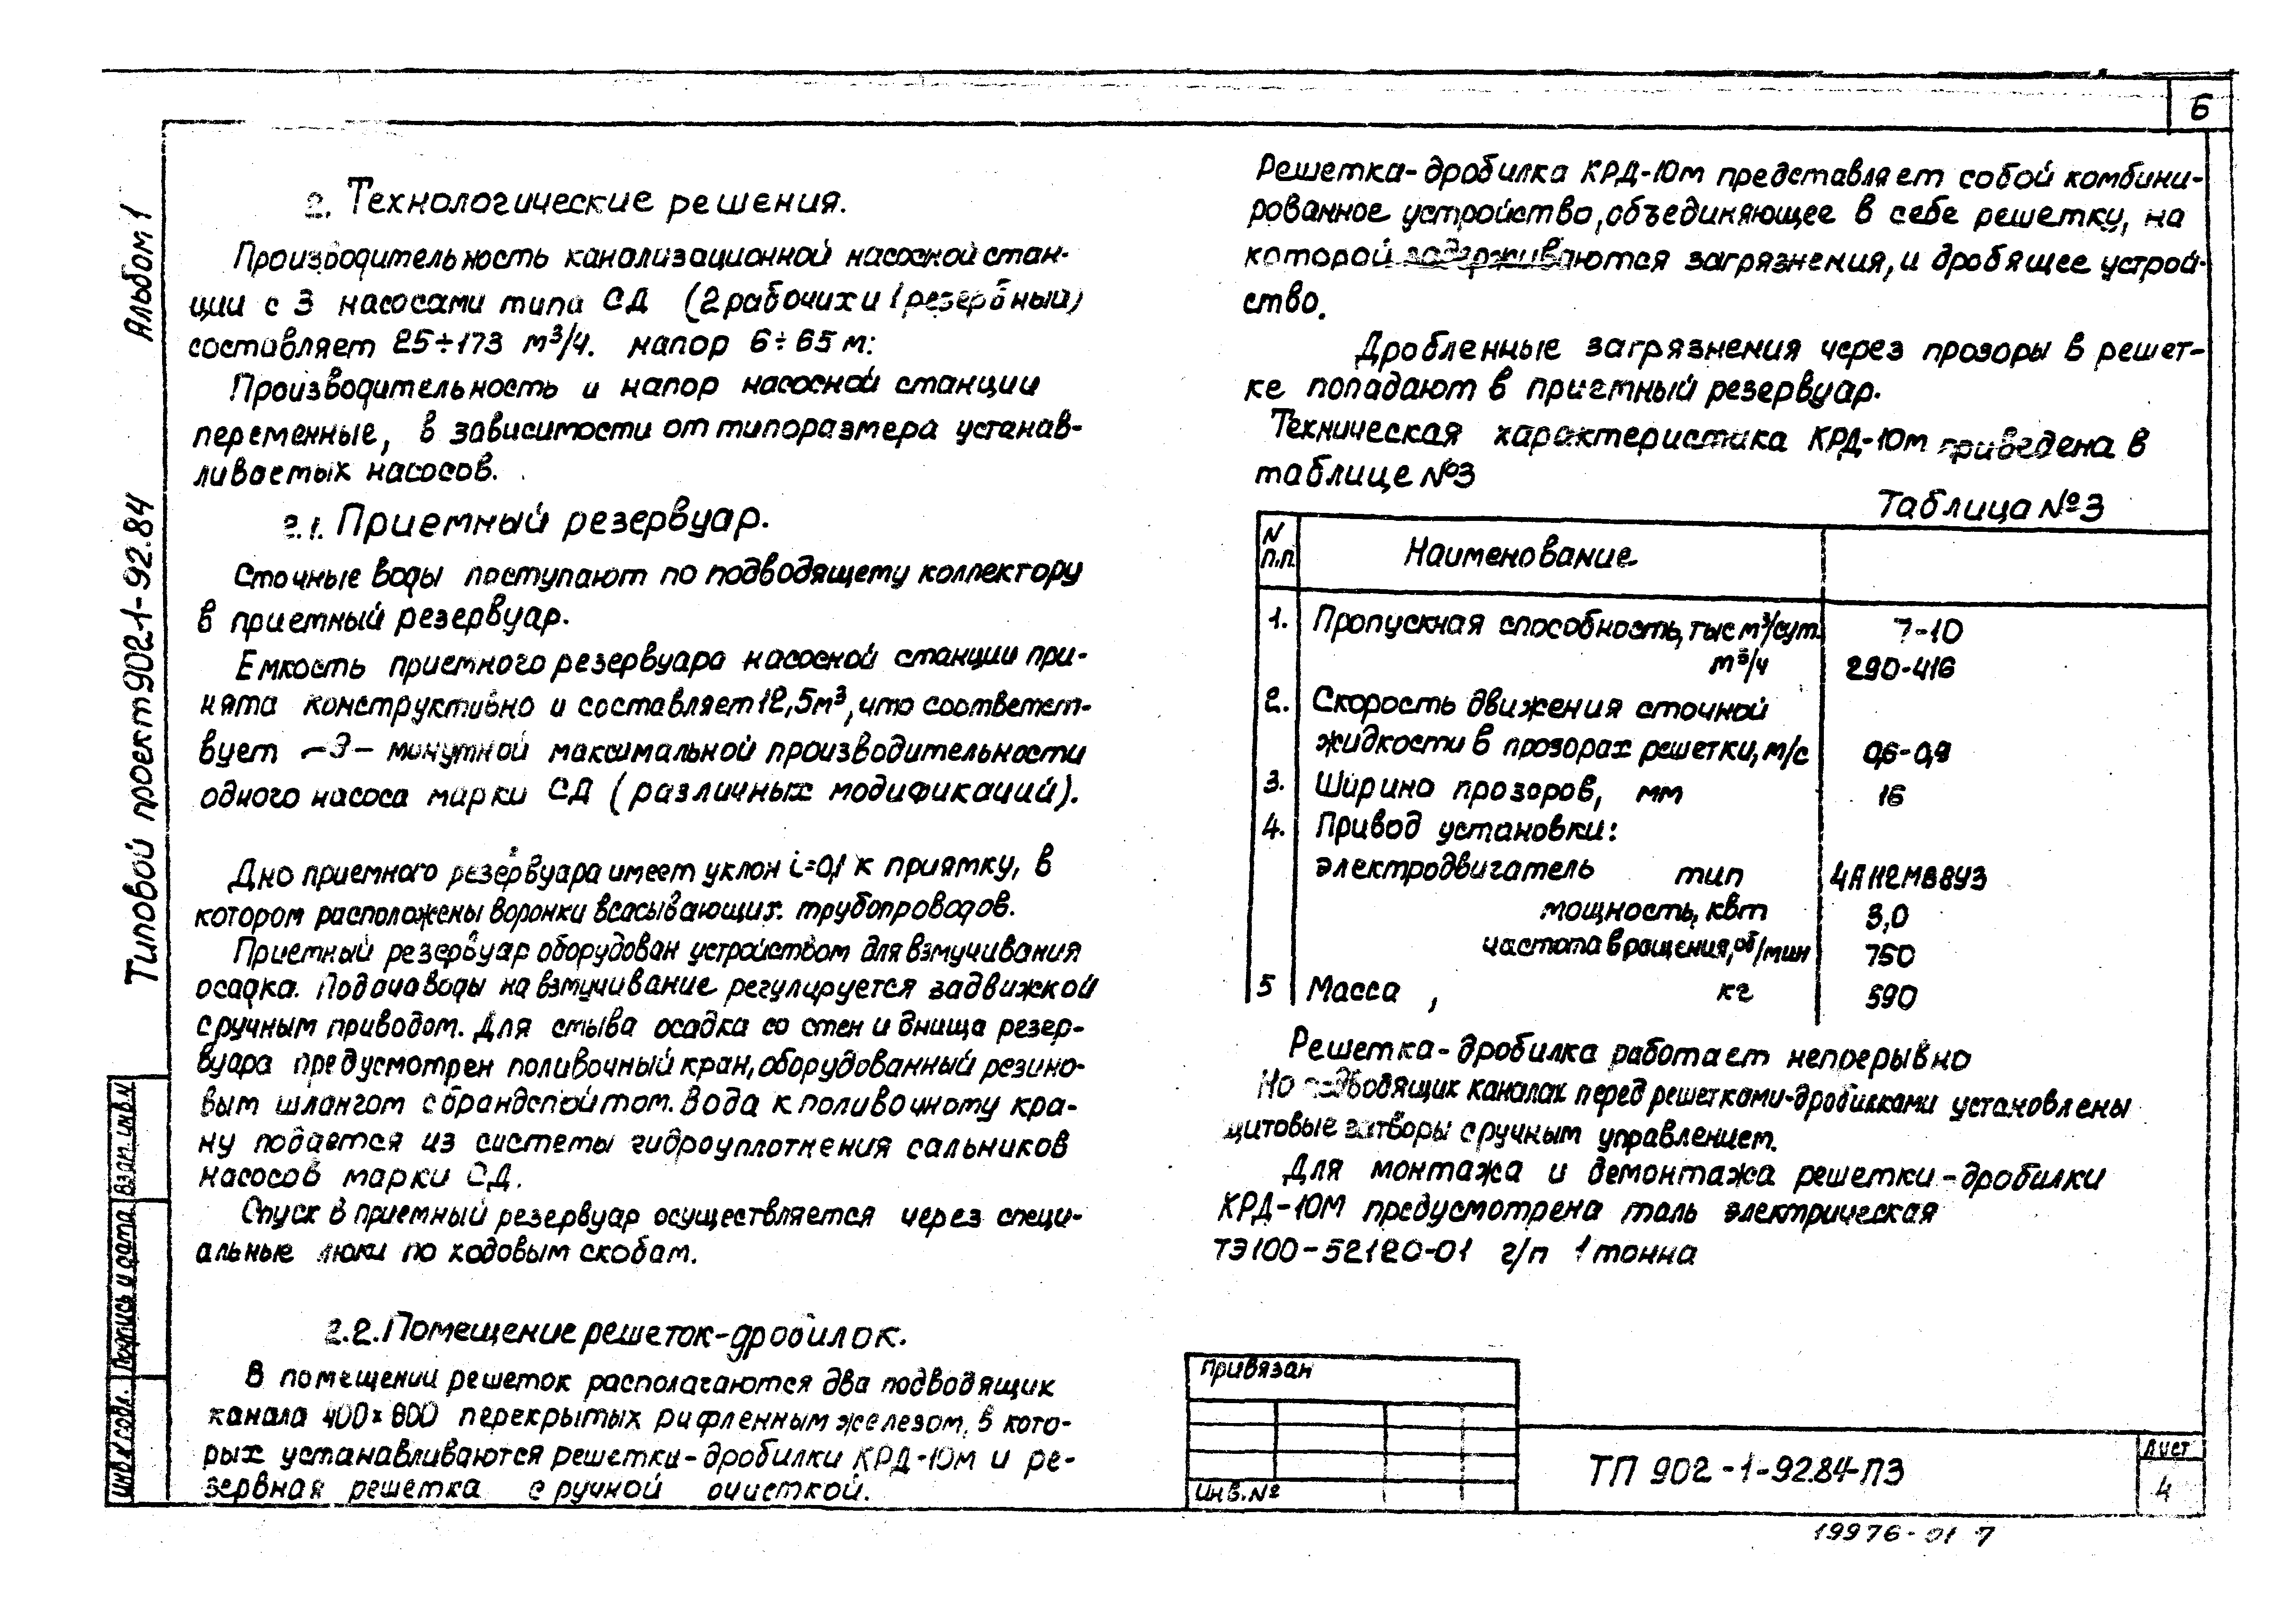 6
Альбом 1
Типовой проект 902-1-92.84
Взам. инв.N
Подпись и дата
Инв.N подл.
2. Технологические решения.
Производительность канализационной насосной стан-
ции с 3 насосами типа СД (2 рабочих и 1 резервный)
составляет 25÷173 м³/ч. напор 6÷65 м:
Производительность и напор насосной станции
переменные, в зависимости от типоразмера устанав-
ливаемых насосов.
2.1. Приемный резервуар.
Сточные воды поступают по подводящему коллектору
в приемный резервуар.
Емкость приемного резервуара насосной станции при-
нята конструктивно и составляет 12,5м³, что соответст-
вует ~3- минутной максимальной производительности
одного насоса марки СД (различных модификаций).
Дно приемного резервуара имеет уклон i=0,1 к приямку, в
котором расположены воронки всасывающих трубопроводов.
Приемный резервуар оборудован устройством для взмучивания
осадка. Подача воды на взмучивание регулируется задвижкой
с ручным приводом. Для смыва осадка со стен и днища резер-
вуара предусмотрен поливочный кран, оборудованный резино-
вым шлангом с брандспойтом. Вода к поливочному кра-
ну подается из системы гидроуплотнения сальников
насосов марки СД.
Спуск в приемный резервуар осуществляется через специ-
альные люки по ходовым скобам.
2.2. Помещение решеток-дробилок.
В помещении решеток располагаются два подводящих
канала 400×800 перекрытых рифленным железом, в кото-
рых устанавливаются решетки-дробилки КРД-10м и ре-
зервная решетка с ручной очисткой.
Решетка-дробилка КРД-10м представляет собой комбини-
рованное устройство, объединяющее в себе решетку, на
которой задерживаются загрязнения, и дробящее устрой-
ство.
Дробленные загрязнения через прозоры в решет-
ке попадают в приемный резервуар.
Техническая характеристика КРД-10м приведена в
таблице №3
Таблица №3
N п.п. Наименование
1. Пропускная способность, тыс м³/сут. 7-10
м³/ч 290-416
2. Скорость движения сточной
жидкости в прозорах решетки, м/с 0,6-0,9
3. Ширина прозоров, мм 16
4. Привод установки:
электродвигатель тип 4А112МВ8У3
мощность, квт 3,0
частота вращения, об/мин 750
5 Масса, кг 590
Решетка-дробилка работает непрерывно
На подводящих каналах перед решетками-дробилками установлены
щитовые затворы с ручным управлением.
Для монтажа и демонтажа решетки-дробилки
КРД-10М предусмотрена таль электрическая
ТЭ100-52120-01 г/п 1 тонна
Привязан
Инв.№
ТП 902-1-92.84-ПЗ
Лист
4
19976-01 7